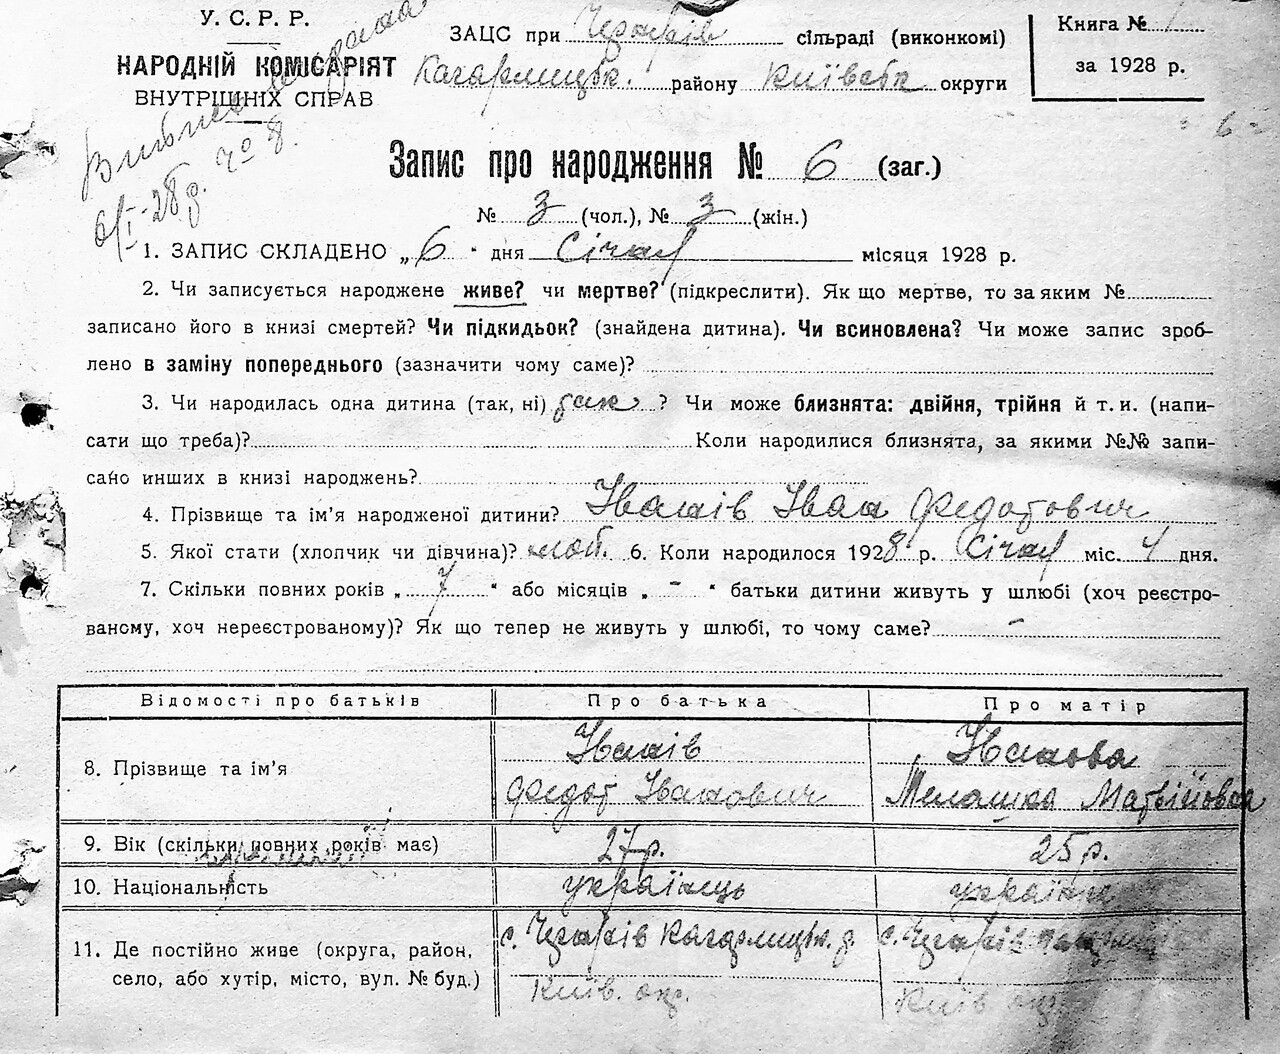 У. С. Р. Р.
НАРОДНІЙ КОМІСАРІЯТ
ВНУТРІШНІХ СПРАВ
6/I-28 р. № 8.
ЗАЦС при сільраді (виконкомі)
Кагарлицьк. району Київськ округи
Книга № 1
за 1928 р.
- 6 -
Запис про народження № 6 (заг.)
№ 3 (чол.), № 3 (жін.)
1. ЗАПИС СКЛАДЕНО „ 6 “ дня Січня місяця 1928 р.
2. Чи записується народжене живе? чи мертве? (підкреслити). Як що мертве, то за яким №
записано його в книзі смертей? Чи підкидьок? (знайдена дитина). Чи всиновлена? Чи може запис зроб-
лено в заміну попереднього (зазначити чому саме)?
3. Чи народилась одна дитина (так, ні) так ? Чи може близнята: двійня, трійня й т. и. (напи-
сати що треба)? Коли народилися близнята, за якими №№ запи-
сано инших в книзі народжень?
4. Прізвище та ім’я народженої дитини? Івашів Іван Федотович
5. Якої стати (хлопчик чи дівчина)? 6. Коли народилося 1928 р. Січня міс. 4 дня.
7. Скільки повних років „ 7 “ або місяців „ - “ батьки дитини живуть у шлюбі (хоч реєстро-
ваному, хоч нереєстрованому)? Як що тепер не живуть у шлюбі, то чому саме? -
Відомості про батьків Про батька Про матір
8. Прізвище та ім’я Івашів Федот Іванович Мелашка Матвійовна
9. Вік (скільки повних років має) 27 р. 25 р.
10. Національність українець українк
11. Де постійно живе (округа, район, с. Кагарлицьк. р с.
село, або хутір, місто, вул. № буд.) Київ. окр. Київ окр